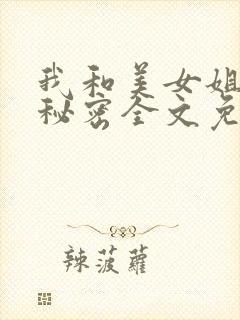 我和美女姐
秘密全文免
辣菠蘿